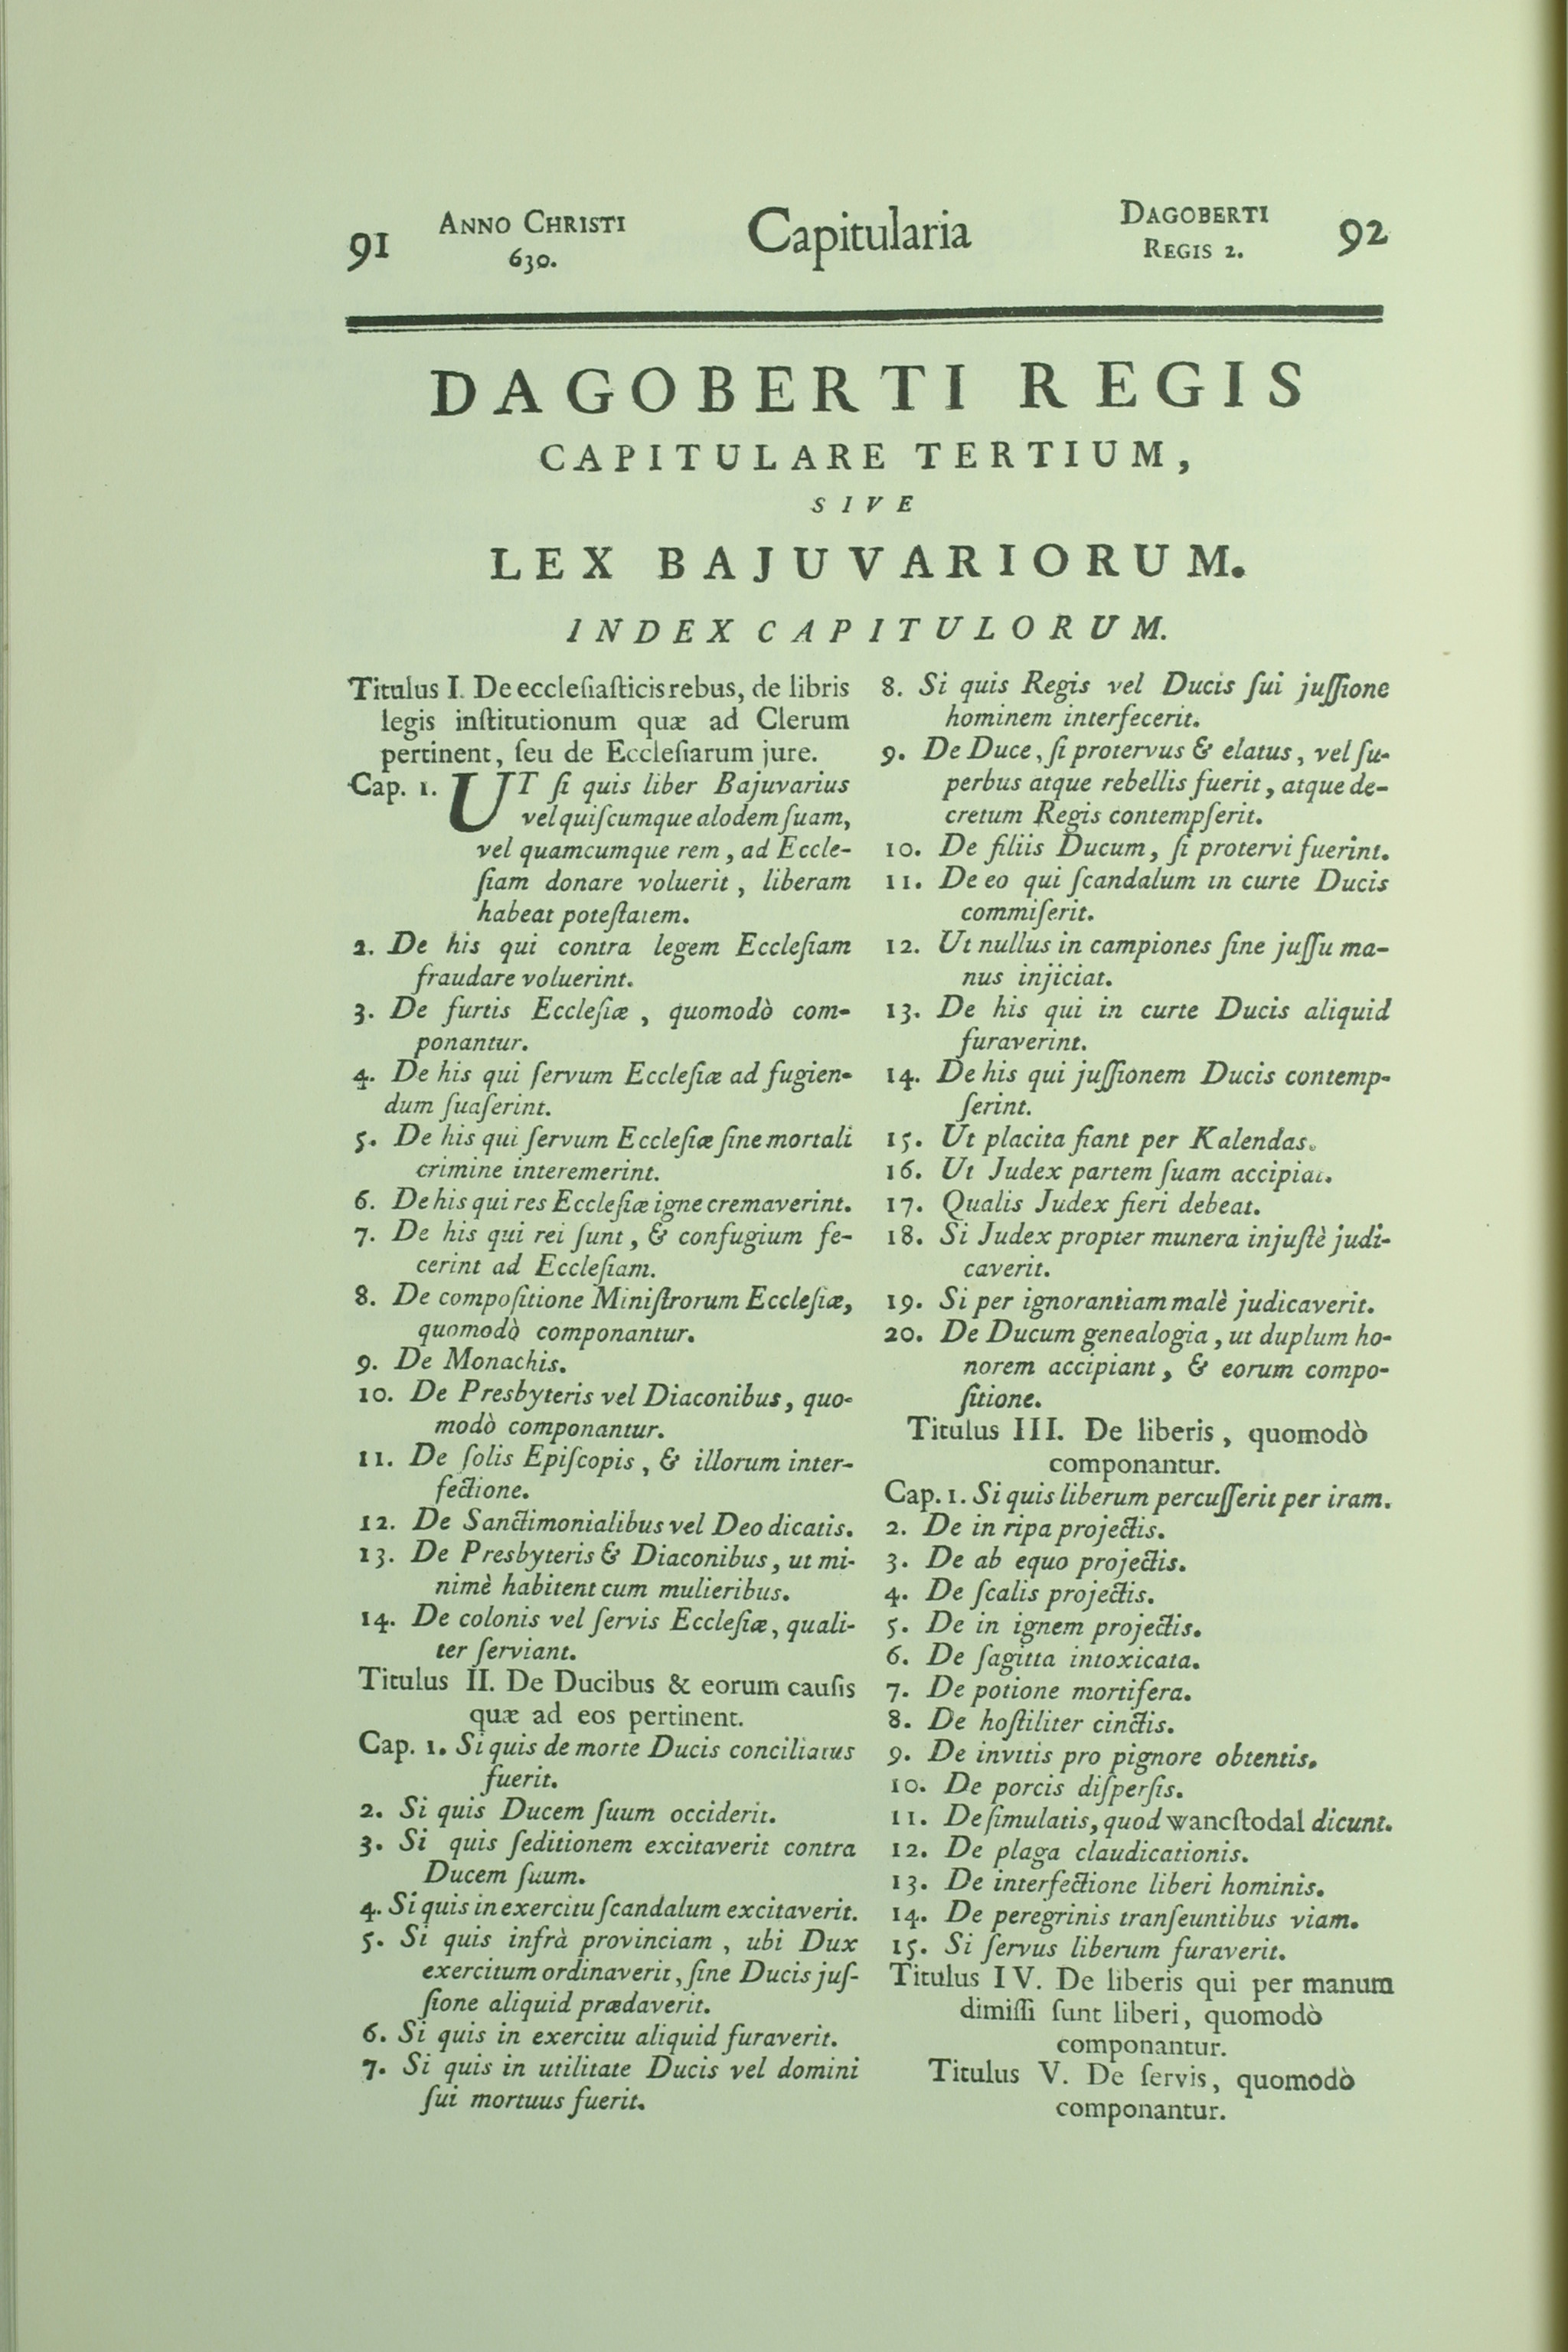 91 ANNO CHRISTI 630. Capitularia DAGOBERTI REGIS 2. 92
DAGOBERTI REGIS
CAPITULARE TERTIUM,
SIVE
LEX BAJUVARIORUM.
INDEX CAPITULORUM.
Titulus I. De eccleſiaſticis rebus, de libris
legis inſtitutionum quæ ad Clerum
pertinent, ſeu de Eccleſiarum jure.
Cap. 1. UT ſi quis liber Bajuvarius
vel quiſcumque alodem ſuam,
vel quamcumque rem, ad Eccle-
ſiam donare voluerit, liberam
habeat poteſtatem.
2. De his qui contra legem Eccleſiam
fraudare voluerint.
3. De furtis Eccleſiæ, quomodò com-
ponantur.
4. De his qui ſervum Eccleſiæ ad fugien-
dum ſuaſerint.
5. De his qui ſervum Eccleſiæ ſine mortali
crimine interemerint.
6. De his qui res Eccleſiæ igne cremaverint.
7. De his qui rei ſunt, & confugium fe-
cerint ad Eccleſiam.
8. De compoſitione Miniſtrorum Eccleſiæ,
quomodò componantur.
9. De Monachis.
10. De Presbyteris vel Diaconibus, quo-
modò componantur.
11. De ſolis Epiſcopis, & illorum inter-
fectione.
12. De Sanctimonialibus vel Deo dicatis.
13. De Presbyteris & Diaconibus, ut mi-
nimè habitent cum mulieribus.
14. De colonis vel ſervis Eccleſiæ, quali-
ter ſerviant.
Titulus II. De Ducibus & eorum cauſis
quæ ad eos pertinent.
Cap. 1. Si quis de morte Ducis conciliatus
fuerit.
2. Si quis Ducem ſuum occiderit.
3. Si quis ſeditionem excitaverit contra
Ducem ſuum.
4. Si quis in exercitu ſcandalum excitaverit.
5. Si quis infrà provinciam, ubi Dux
exercitum ordinaverit, ſine Ducis juſ-
ſione aliquid prædaverit.
6. Si quis in exercitu aliquid furaverit.
7. Si quis in utilitate Ducis vel domini
ſui mortuus fuerit.
8. Si quis Regis vel Ducis ſui juſſione
hominem interfecerit.
9. De Duce, ſi protervus & elatus, vel ſu-
perbus atque rebellis fuerit, atque de-
cretum Regis contempſerit.
10. De filiis Ducum, ſi protervi fuerint.
11. De eo qui ſcandalum in curte Ducis
commiſerit.
12. Ut nullus in campiones ſine juſſu ma-
nus injiciat.
13. De his qui in curte Ducis aliquid
furaverint.
14. De his qui juſſionem Ducis contemp-
ſerint.
15. Ut placita fiant per Kalendas.
16. Ut Judex partem ſuam accipiat.
17. Qualis Judex fieri debeat.
18. Si Judex propter munera injuſtè judi-
caverit.
19. Si per ignorantiam malè judicaverit.
20. De Ducum genealogia, ut duplum ho-
norem accipiant, & eorum compo-
ſitione.
Titulus III. De liberis, quomodò
componantur.
Cap. 1. Si quis liberum percuſſerit per iram.
2. De in ripa projectis.
3. De ab equo projectis.
4. De ſcalis projectis.
5. De in ignem projectis.
6. De ſagitta intoxicata.
7. De potione mortifera.
8. De hoſtiliter cinctis.
9. De invitis pro pignore obtentis.
10. De porcis diſperſis.
11. De ſimulatis, quod wancſtodal dicunt.
12. De plaga claudicationis.
13. De interfectione liberi hominis.
14. De peregrinis tranſeuntibus viam.
15. Si ſervus liberum furaverit.
Titulus IV. De liberis qui per manum
dimiſſi ſunt liberi, quomodò
componantur.
Titulus V. De ſervis, quomodò
componantur.